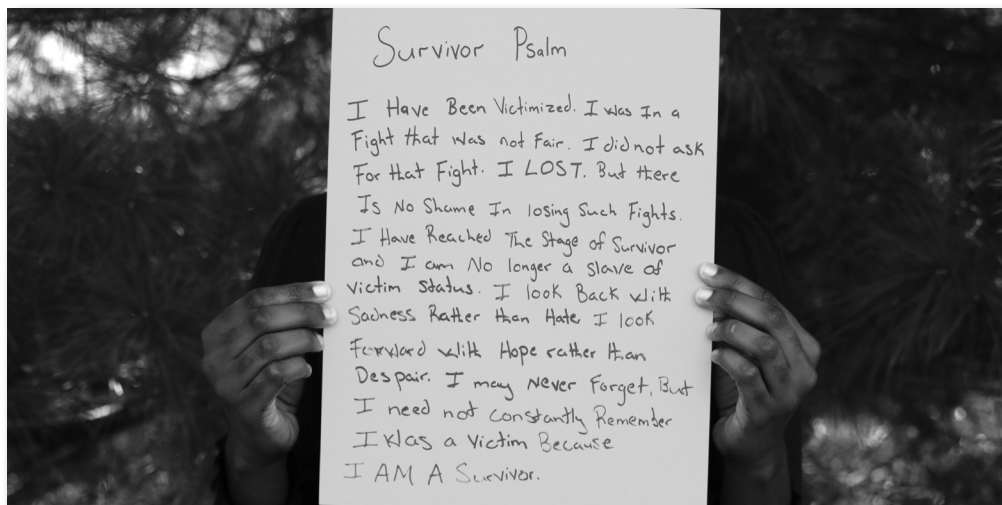 Survivor Psalm
I Have Been Victimized. I was In a
Fight that was not Fair. I did not ask
For that Fight. I LOST. But there
Is No Shame In losing Such Fights.
I Have Reached The Stage of Survivor
and I am No longer a slave of
victim status. I look Back with
Sadness Rather than Hate I look
Forward with Hope rather than
Despair. I may Never Forget, But
I need not constantly Remember
I was a victim Because
I AM A Survivor.